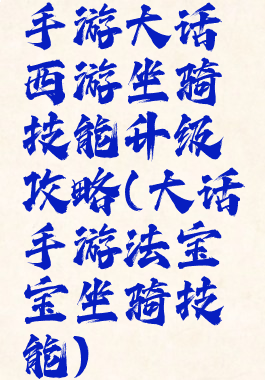 手游大话
西游坐骑
技能升级
攻略(大话
手游法宝
宝坐骑技
能)